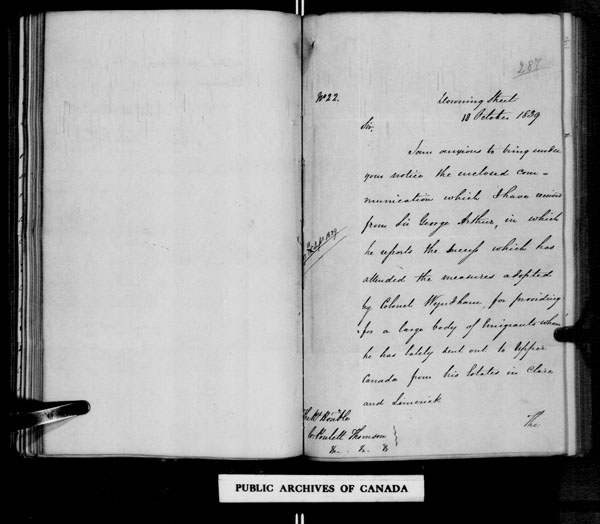 287
No 22.
Downing Street
18 October 1839
Sir,
I am anxious to bring under
your notice the enclosed com-
munication which I have received
from Sir George Arthur, in which
he reports the success which has
attended the measures adopted
by Colonel Wyndham, for providing
for a large body of Emigrants whom
he has lately sent out to Upper
Canada from his Estates in Clare
and Limerick
The
The Rt Honble
C. Poulett Thomson
&c. &c. &c
PUBLIC ARCHIVES OF CANADA